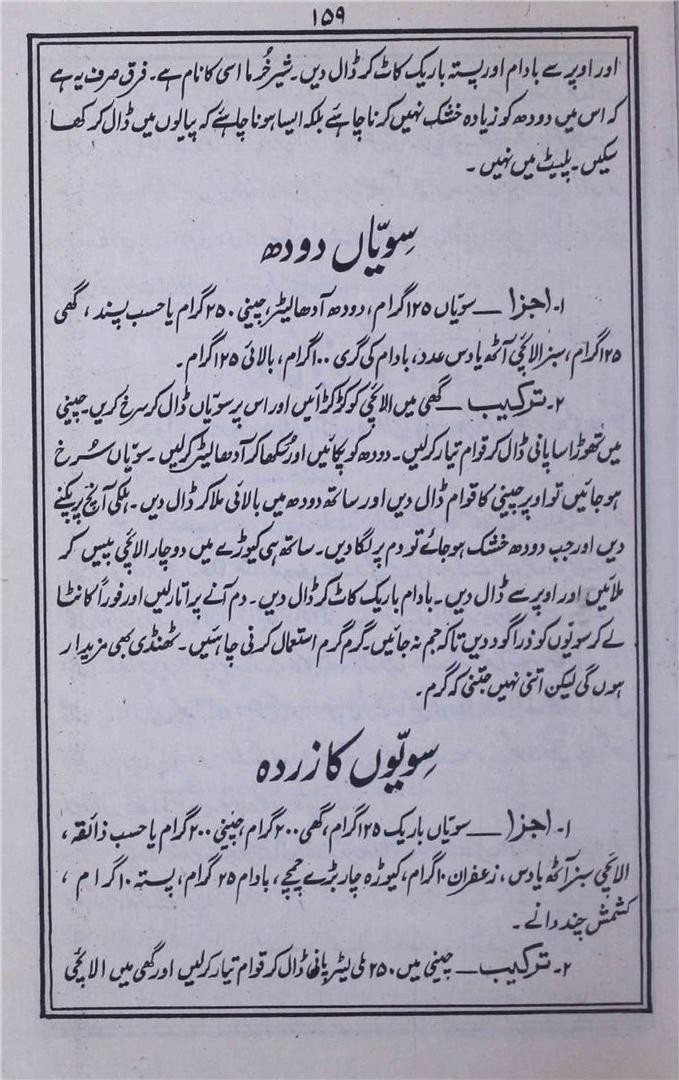 ۱۵۹
اور اوپر سے بادام اور پستہ باریک کاٹ کر ڈال دیں۔ شیر خُرما اسی کا نام ہے۔ فرق صرف یہ ہے
کہ اس میں دودھ کو زیادہ خشک نہیں کرنا چاہئے بلکہ ایسا ہونا چاہئے کہ پیالوں میں ڈال کر کھا
سکیں۔ پلیٹ میں نہیں۔
سِویّاں دودھ
۱۔ اجزا — سوّیاں ۱۲۵ گرام، دودھ آدھا لیٹر، چینی ۲۵۰ گرام یا حسب پسند، گھی
۱۲۵ گرام، سبز الائچی آٹھ یا دس عدد، بادام کی گری ۱۰۰ گرام، بالائی ۱۲۵ گرام۔
۲۔ ترکیب — گھی میں الائچی کو کڑکڑائیں اور اس پر سوّیاں ڈال کر سرخ کریں۔ چینی
میں تھوڑا سا پانی ڈال کر قوام تیار کرلیں۔ دودھ کو پکائیں اور سُکھا کر آدھا لیٹر کرلیں۔ سوّیاں سُرخ
ہو جائیں تو اوپر چینی کا قوام ڈال دیں اور ساتھ دودھ میں بالائی ملا کر ڈال دیں۔ ہلکی آنچ پر پکنے
دیں اور جب دودھ خشک ہو جائے تو دم پر لگا دیں۔ ساتھ ہی کیوڑے میں دو چار الائچی پیس کر
ملائیں اور اوپر سے ڈال دیں۔ بادام باریک کاٹ کر ڈال دیں۔ دم آنے پر اتار لیں اور فوراً کانٹا
لے کر سوّیوں کو ذرا گود دیں تاکہ جم نہ جائیں۔ گرم گرم استعمال کرنی چاہئیں۔ ٹھنڈی بھی مزیدار
ہوں گی لیکن اتنی نہیں جتنی کہ گرم۔
سِویّوں کا زردہ
۱۔ اجزا — سوّیاں باریک ۱۲۵ گرام، گھی ۲۰۰ گرام، چینی ۲۰۰ گرام یا حسب ذائقہ،
الائچی سبز آٹھ یا دس، زعفران ۱۰ گرام، کیوڑہ چار بڑے چمچے، بادام ۲۵ گرام، پستہ ۱۰ گرام،
کشمش چند دانے۔
۲۔ ترکیب — چینی میں ۲۵۰ ملی لیٹر پانی ڈال کر قوام تیار کرلیں اور گھی میں الائچی